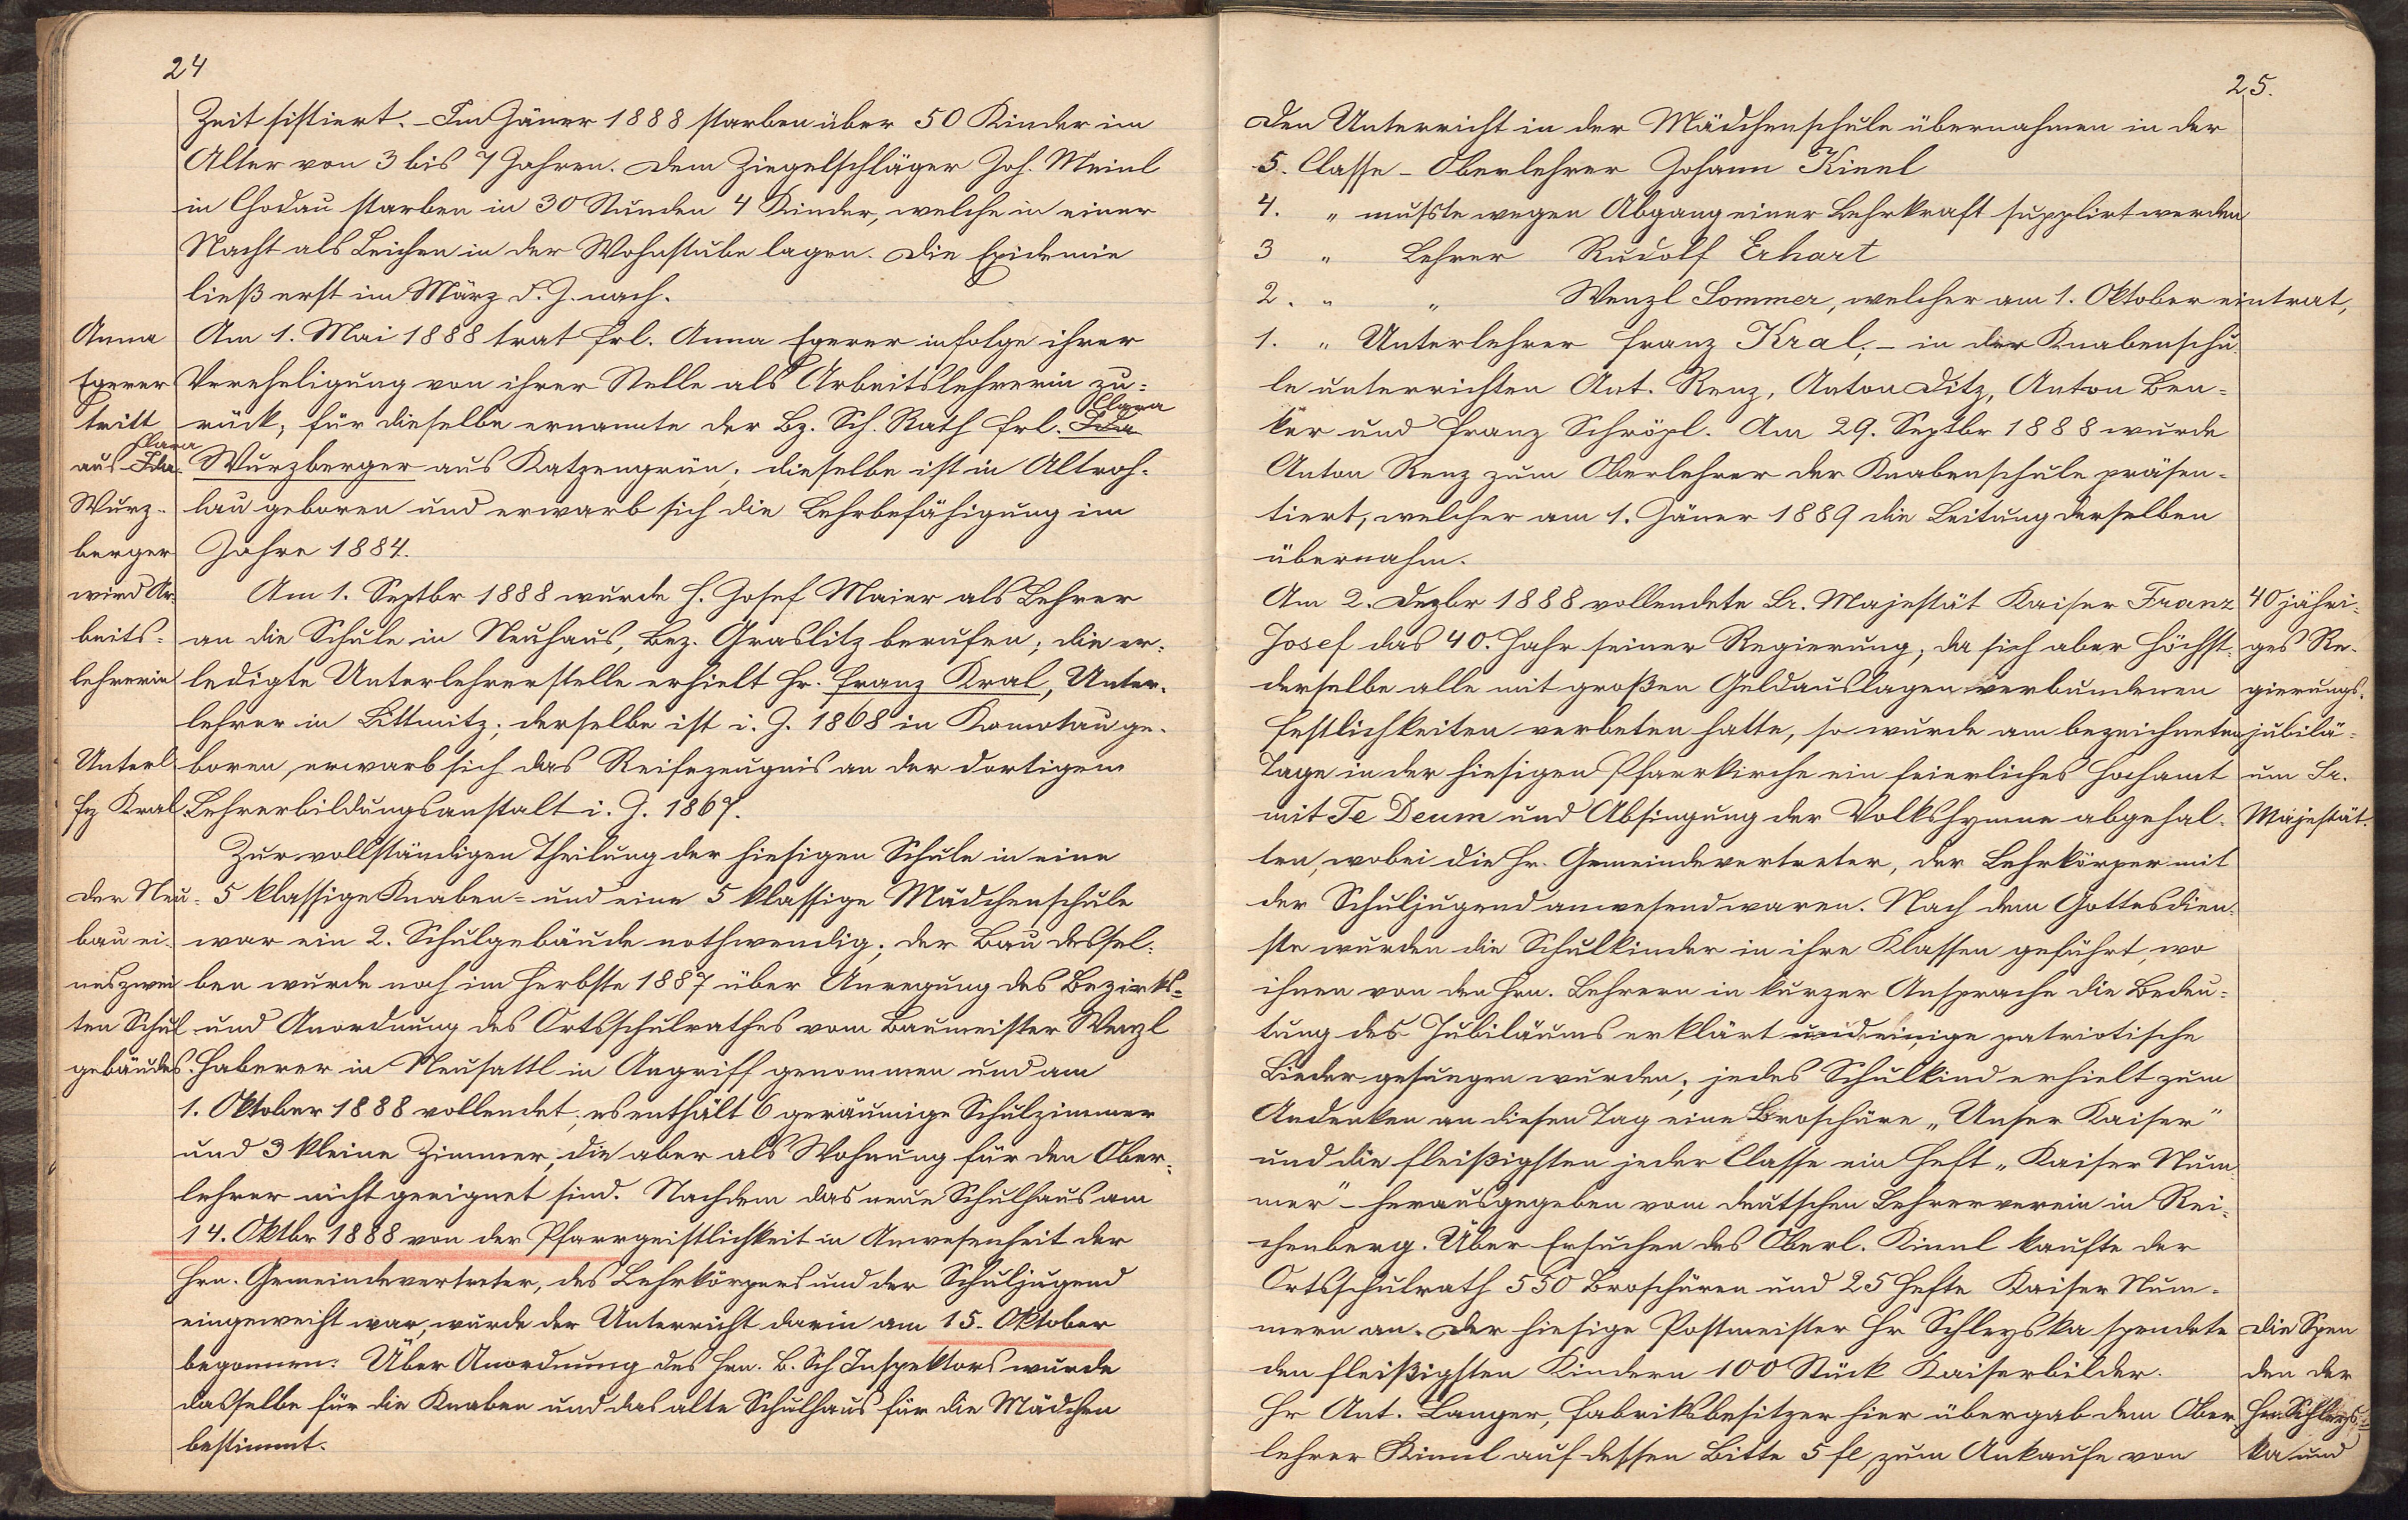 24
Zeit sistiert. – Im Jäner 1888 starben über 50 Kinder im
Alter von 3 bis 7 Jahren. Dem Ziegelschläger Joh. Meinl
in Chodau starben in 30 Stunden 4 Kinder, welche in einer
Nacht als Leichen in der Wohnstube lagen. Die Epidemie
ließ erst im März d. J. nach.
Anna
Egerer
tritt
Clara
aus Ida
Wurz-
berger
wird Ar-
beits-
lehrerin
Am 1. Mai 1888 trat Frl. Anna Egerer infolge ihrer
Verehelichung von ihrer Stelle als Arbeitslehrerin zu-
Clara
rück; für dieselbe ernannte der Bz. Sch. Rath Frl. Ida
Wurzberger aus Katzengrün; dieselbe ist in Altroh-
lau geboren und erwarb sich die Lehrbefähigung im
Jahre 1884.
Am 1. Septbr 1888 wurde H. Josef Maier als Lehrer
an die Schule in Neuhaus, Bez. Graslitz berufen; die er-
ledigte Unterlehrerstelle erhielt Hr. Franz Kral, Unter-
lehrer in Littmitz; derselbe ist i. J. 1868 in Komotau ge-
Unterl
Fz Kral
boren, erwarb sich das Reifezeugnis an der dortigen
Lehrerbildungsanstalt i. J. 1867.
Zur vollständigen Theilung der hiesigen Schule in eine
Der Neu-
bau ei-
nes zwei
ten Schul
gebäudes.
5 klassige Knaben- und eine 5 klassige Mädchenschule
war ein 2. Schulgebäude nothwendig; der Bau dessel-
ben wurde noch im Herbste 1887 über Anregung des Bezirks-
und Anordnung des Ortsschulrathes vom Baumeister Wenzl
Haberer in Neusattl in Angriff genommen und am
1. Oktober 1888 vollendet; es enthält 6 geräumige Schulzimmer
und 3 kleine Zimmer, die aber als Wohnung für den Ober-
lehrer nicht geeignet sind. Nachdem das neue Schulhaus am
14. Oktbr 1888 von der Pfarrgeistlichkeit in Anwesenheit der
Hrn. Gemeindevertreter, des Lehrkörpers und der Schuljugend
eingeweiht war, wurde der Unterricht darin am 15. Oktober
begonnen. Über Anordnung des Hrn. B. Sch Inspektors wurde
dasselbe für die Knaben und das alte Schulhaus für die Mädchen
bestimmt.
25.
Den Unterricht in der Mädchenschule übernahmen in der
5. Classe – Oberlehrer Johann Kinnl
4. " mußte wegen Abgang einer Lehrkraft supplirt werden
3 " Lehrer Rudolf Erhart
2. " " Wenzl Sommer, welcher am 1. Oktober eintrat,
1. " Unterlehrer Franz Kral; – in der Knabenschu-
le unterrichten Ant. Renz, Anton Ditz, Anton Ben-
ker und Franz Schröpl. Am 29. Septbr 1888 wurde
Anton Renz zum Oberlehrer der Knabenschule präsen-
tiert, welcher am 1. Jäner 1889 die Leitung derselben
übernahm.
Am 2. Dezbr 1888 vollendete Sr. Majestät Kaiser Franz
Josef das 40. Jahr seiner Regierung; da sich aber Höchst-
derselbe alle mit großen Geldauslagen verbundenen
Festlichkeiten verbeten hatte, so wurde am bezeichneten
Tage in der hiesigen Pfarrkirche ein feierliches Hochamt
mit Te Deum und Absingung der Volkshymne abgehal-
40 jähri-
ges Re-
gierungs-
jubilä-
um Sr.
Majestät.
ten, wobei die Hr. Gemeindevertreter, der Lehrkörper mit
der Schuljugend anwesend waren. Nach dem Gottesdien-
ste wurden die Schulkinder in ihre Klassen geführt, wo
ihnen von den Hrn. Lehrern in kurzer Ansprache die Bedeu-
tung des Jubiläums erklärt und einige patriotische
Lieder gesungen wurden; jedes Schulkind erhielt zum
Andenken an diesen Tag eine Broschüre „Unser Kaiser"
und die fleißigsten jeder Classe ein Heft „Kaiser Num-
mer" – herausgegeben vom deutschen Lehrerverein in Rei-
chenberg. Über Ersuchen des Oberl. Kinnl kaufte der
Ortsschulrath 550 Broschüren und 25 Hefte Kaiser Num-
mern an. Der hiesige Postmeister Hr Schleyska spendete
den fleißigsten Kindern 100 Stück Kaiserbilder.
Hr Ant. Langer, Fabriksbesitzer hier übergab dem Ober
lehrer Kinnl auf dessen Bitte 5 fl, zum Ankaufe von
Die Spen
den der
Hrn. Schleys-
ka und